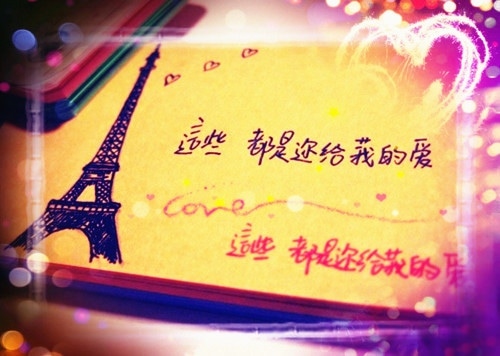 這些 都是你给我的爱
Love
這些 都是你给我的爱